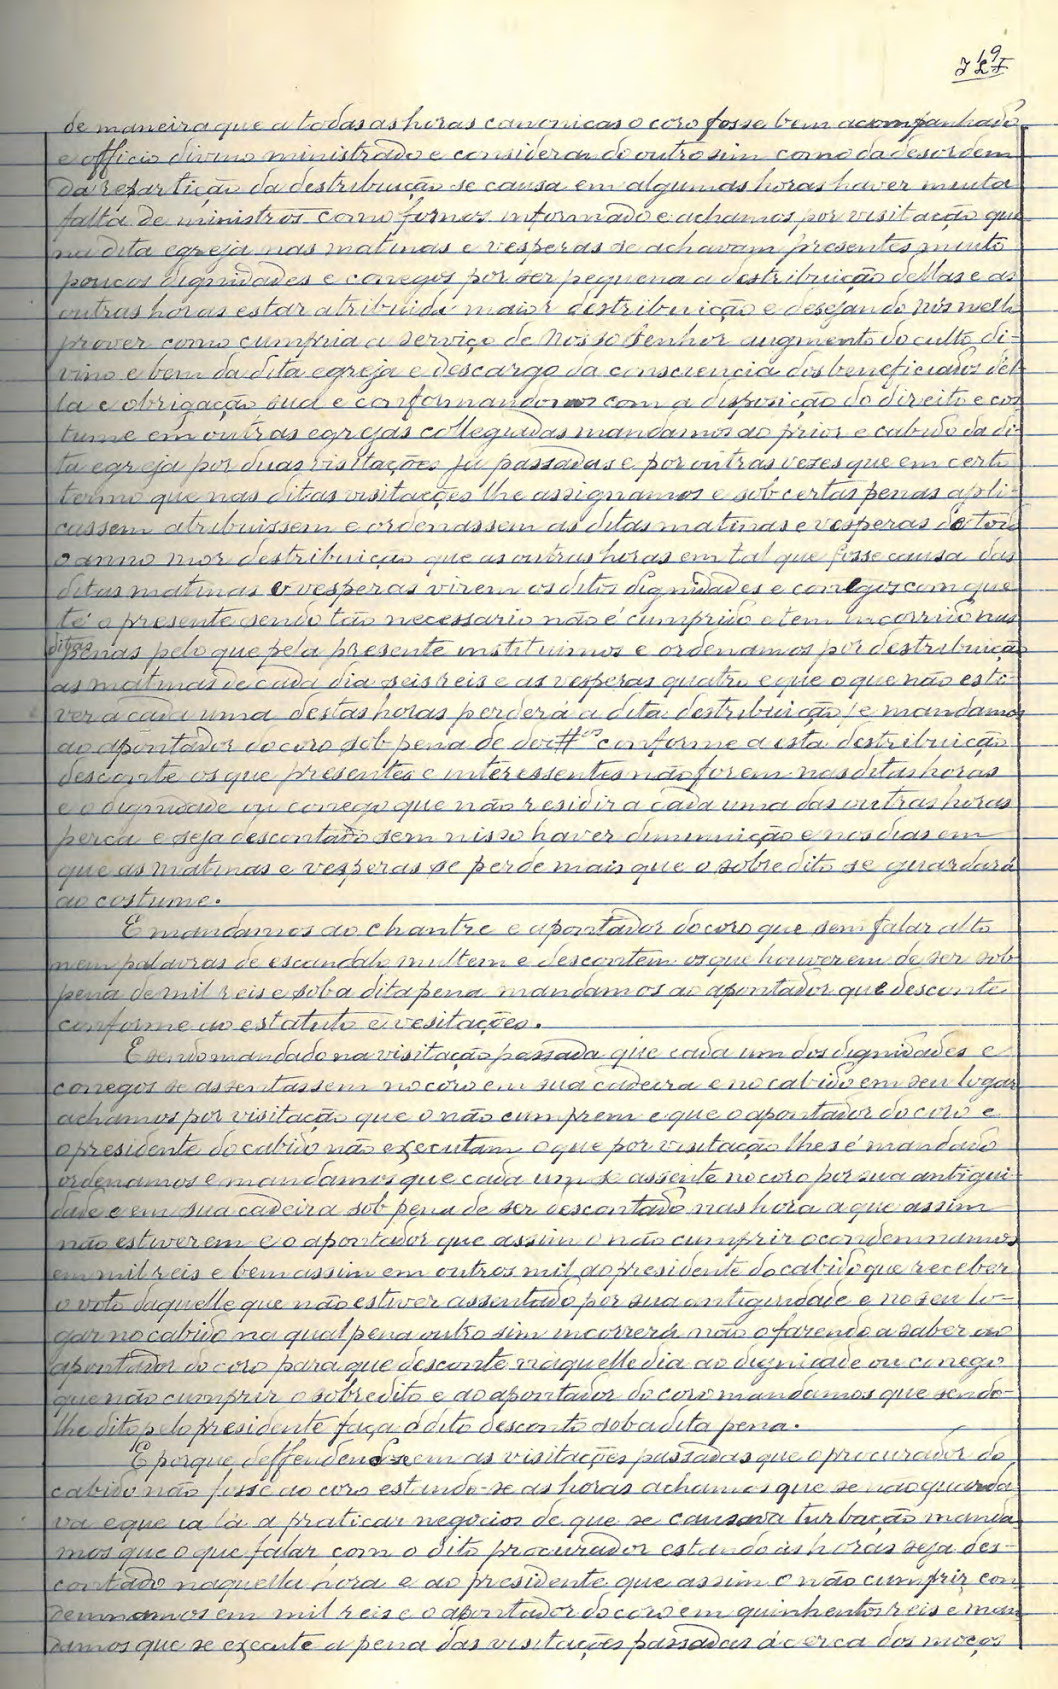 49
de maneira que a todas as horas canonicas o coro fosse bem acompanhado
e officio divino ministrado e considerando outro sim como da desordem
da repartição da destribuição se causa em algumas horas haver muita
falta de ministros como fomos informado e achamos por visitação que
na dita egreja nas matinas e vesperas se achavam presentes muito
poucos dignidades e conegos por ser pequena a destribuição dellas e as
outras horas estar atribuida maior destribuição e desejando nós nelle
prover como cumpria a serviço de Nosso Senhor augmento do culto di-
vino e bem da dita egreja e descargo da consciencia dos beneficiados del-
la e obrigação sua e conformandonos com a disposição do direito e cos
tume em outras egrejas collegiadas mandamos ao prior e cabido da di-
ta egreja por duas visitações já passadas e por outras vezes que em certo
termo que nas ditas visitações lhe assignamos e sob certas penas apli-
cassem atribuissem e ordenassem as ditas matinas e vesperas de todo
o anno mor destribuição que as outras horas em tal que fosse causa das
ditas matinas e vesperas virem os ditos dignidades e conegos com que
té o presente sendo tão necessario não é cumprido e tem incorrido nas
ditas penas pelo que pela presente instituimos e ordenamos por destribuição
as matinas de cada dia seis reis e as vesperas quatro e que o que não esti-
ver a cada uma destas horas perderá a dita destribuição e mandamos
ao apontador do coro sob pena de dor#os conforme a esta destribuição
desconte os que presentes e interessentes não forem nas ditas horas
e o dignidade ou conego que não residir a cada uma das outras horas
perca e seja descontado sem nisso haver diminuição e nos dias em
que as matinas e vesperas se perde mais que o sobredito se guardará
ao costume.
E mandamos ao chantre e apontador do coro que sem falar alto
nem palavras de escandalo multem e descontem os que houverem de ser sob
pena de mil reis e sob a dita pena mandamos ao apontador que desconte
conforme ao estatuto e vesitações.
E sendo mandado na visitação passada que cada um dos dignidades e
conegos se assentassem no coro em sua cadeira e no cabido em seu logar
achamos por visitação que o não cumprem e que o apontador do coro e
o presidente do cabido não executam o que por visitação lhes é mandado
ordenamos e mandamos que cada um se assente no coro por sua antigui-
dade e em sua cadeira sob pena de ser descontado nas hora a que assim
não estiverem e o apontador que assim o não cumprir o condemnamos
em mil reis e bem assim em outros mil ao presidente do cabido que receber
o voto daquelle que não estiver assentado por sua antiguidade e no seu lo-
gar no cabido na qual pena outro sim incorrerá não o fazendo a saber ao
apontador do coro para que desconte naquelle dia ao dignidade ou conego
que não cumprir o sobredito e ao apontador do coro mandamos que sendo-
lhe dito pelo presidente faça o dito desconto sob a dita pena.
E porque deffendendose em as visitações passadas que o procurador do
cabido não fosse ao coro estando-se as horas achamos que se não guarda
va e que ia lá a praticar negocios de que se causava turbação manda
mos que o que falar com o dito procurador estando ás horas seja des-
contado naquella hora e ao presidente que assim o não cumprir con
demnamos em mil reis e o apontador do coro em quinhentos reis e man
damos que se execute a pena das visitações passadas ácerca dos moços